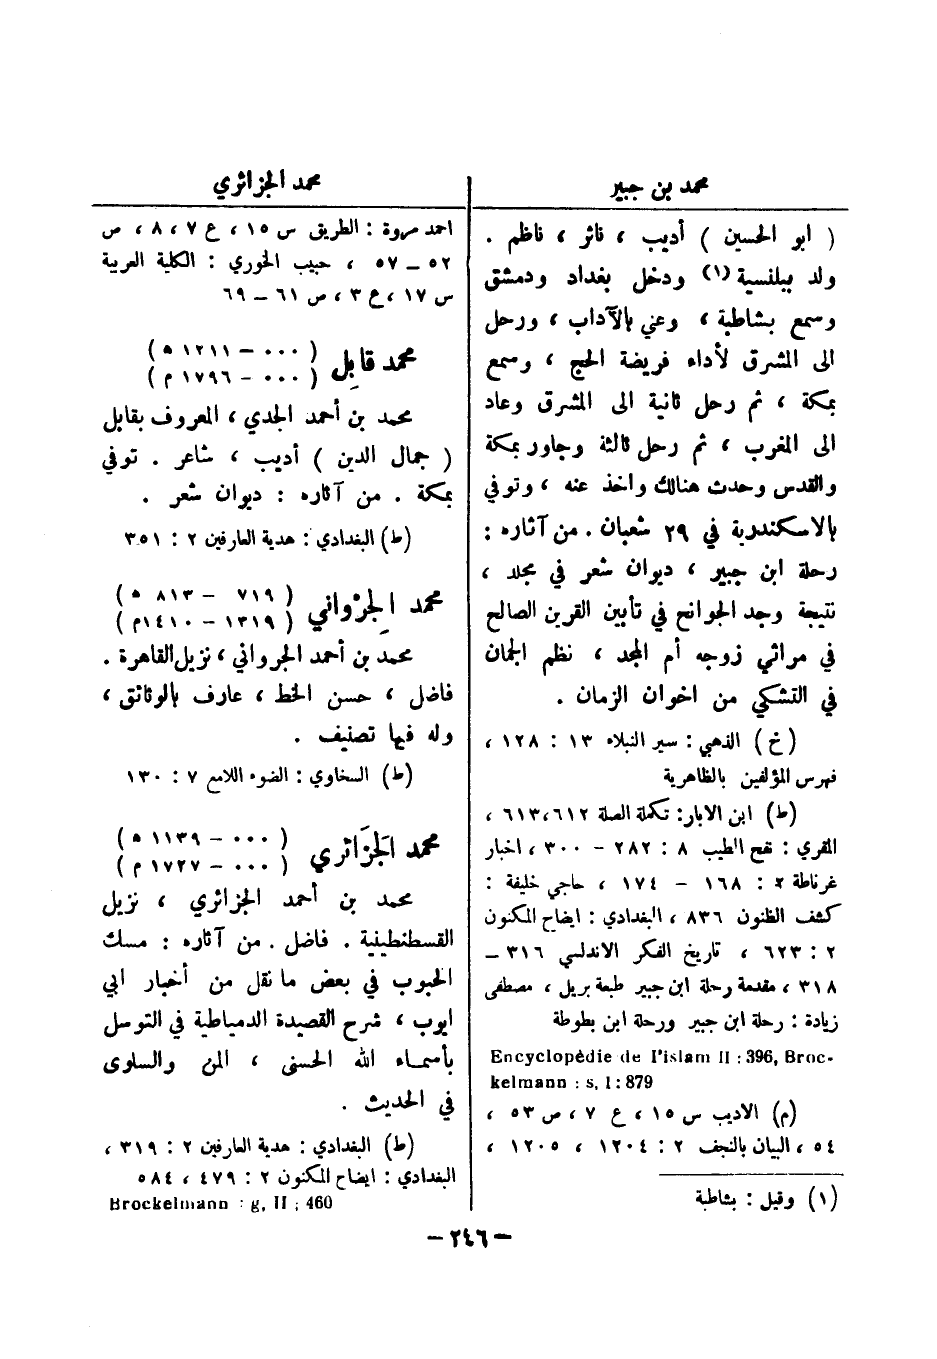 محمد بن جبير
( ابو الحسين ) أديب ، ناثر ، ناظم .
ولد ببلنسية (١) ودخل بغداد ودمشق
وسمع بشاطبة ، وعني بالآداب ، ورحل
الى المشرق لأداء فريضة الحج ، وسمع
بمكة ، ثم رحل ثانية الى المشرق وعاد
الى المغرب ، ثم رحل ثالثة وجاور بمكة
والقدس وحدث هنالك واخذ عنه ، وتوفي
بالاسكندرية في ٢٩ شعبان . من آثاره :
رحلة ابن جبير ، ديوان شعر في مجلد ،
نتيجة وجد الجوانح في تأبين القرين الصالح
في مراثي زوجه أم المجد ، نظم الجمان
في التشكي من اخوان الزمان .
(خ) الذهبي : سير النبلاء ١٣ : ١٢٨ ،
فهرس المؤلفين بالظاهرية
(ط) ابن الابار: تكملة الصلة ٦١٢،٦١٣ ،
المقري : نفح الطيب ٨ : ٢٨٢ – ٣٠٠ ، اخبار
غرناطة ٢ : ١٦٨ – ١٧٤ ، حاجي خليفة :
كشف الظنون ٨٣٦ ، البغدادي : ايضاح المكنون
٢ : ٦٢٣ ، تاريخ الفكر الاندلسي ٣١٦ –
٣١٨ ، مقدمة رحلة ابن جبير طبعة بريل ، مصطفى
زيادة : رحلة ابن جبير ورحلة ابن بطوطة
Encyclopédie de l'islam II : 396, Broc-
kelmann : s, I : 879
(م) الاديب س ١٥ ، ع ٧ ، ص ٥٣ ،
٥٤ ، البيان بالنجف ٢ : ١٢٠٤ ، ١٢٠٥ ،
(١) وقيل : بشاطبة
محمد الجزائري
احمد مروة : الطريق س ١٥ ، ع ٧ ، ٨ ، ص
٥٢ – ٥٧ ، حبيب الخوري : الكلية العربية
س ١٧ ، ع ٣ ، ص ٦١ – ٦٩
محمد قابِل ( ٠٠٠ – ١٢١١ ه )
( ٠٠٠ – ١٧٩٦ م )
محمد بن أحمد الجدي ، المعروف بقابل
( جمال الدين ) أديب ، شاعر . توفي
بمكة . من آثاره : ديوان شعر .
(ط) البغدادي : هدية العارفين ٢ : ٣٥١
محمد الجِرْواني ( ٧١٩ – ٨١٣ ه )
( ١٣١٩ – ١٤١٠م )
محمد بن أحمد الجرواني ، نزيل القاهرة .
فاضل ، حسن الخط ، عارف بالوثائق ،
وله فيها تصنيف .
(ط) السخاوي : الضوء اللامع ٧ : ١٣٠
محمد الجَزَائري ( ٠٠٠ – ١١٣٩ ه )
( ٠٠٠ – ١٧٢٧ م )
محمد بن أحمد الجزائري ، نزيل
القسطنطينية . فاضل . من آثاره : مسك
الحبوب في بعض ما نقل من أخبار ابي
ايوب ، شرح القصيدة الدمياطية في التوسل
بأسماء الله الحسنى ، المن والسلوى
في الحديث .
(ط) البغدادي : هدية العارفين ٢ : ٣١٩ ،
البغدادي : ايضاح المكنون ٢ : ٤٧٩ ، ٥٨٤
Brockelmann : g, II ; 460
– ٢٤٦ –